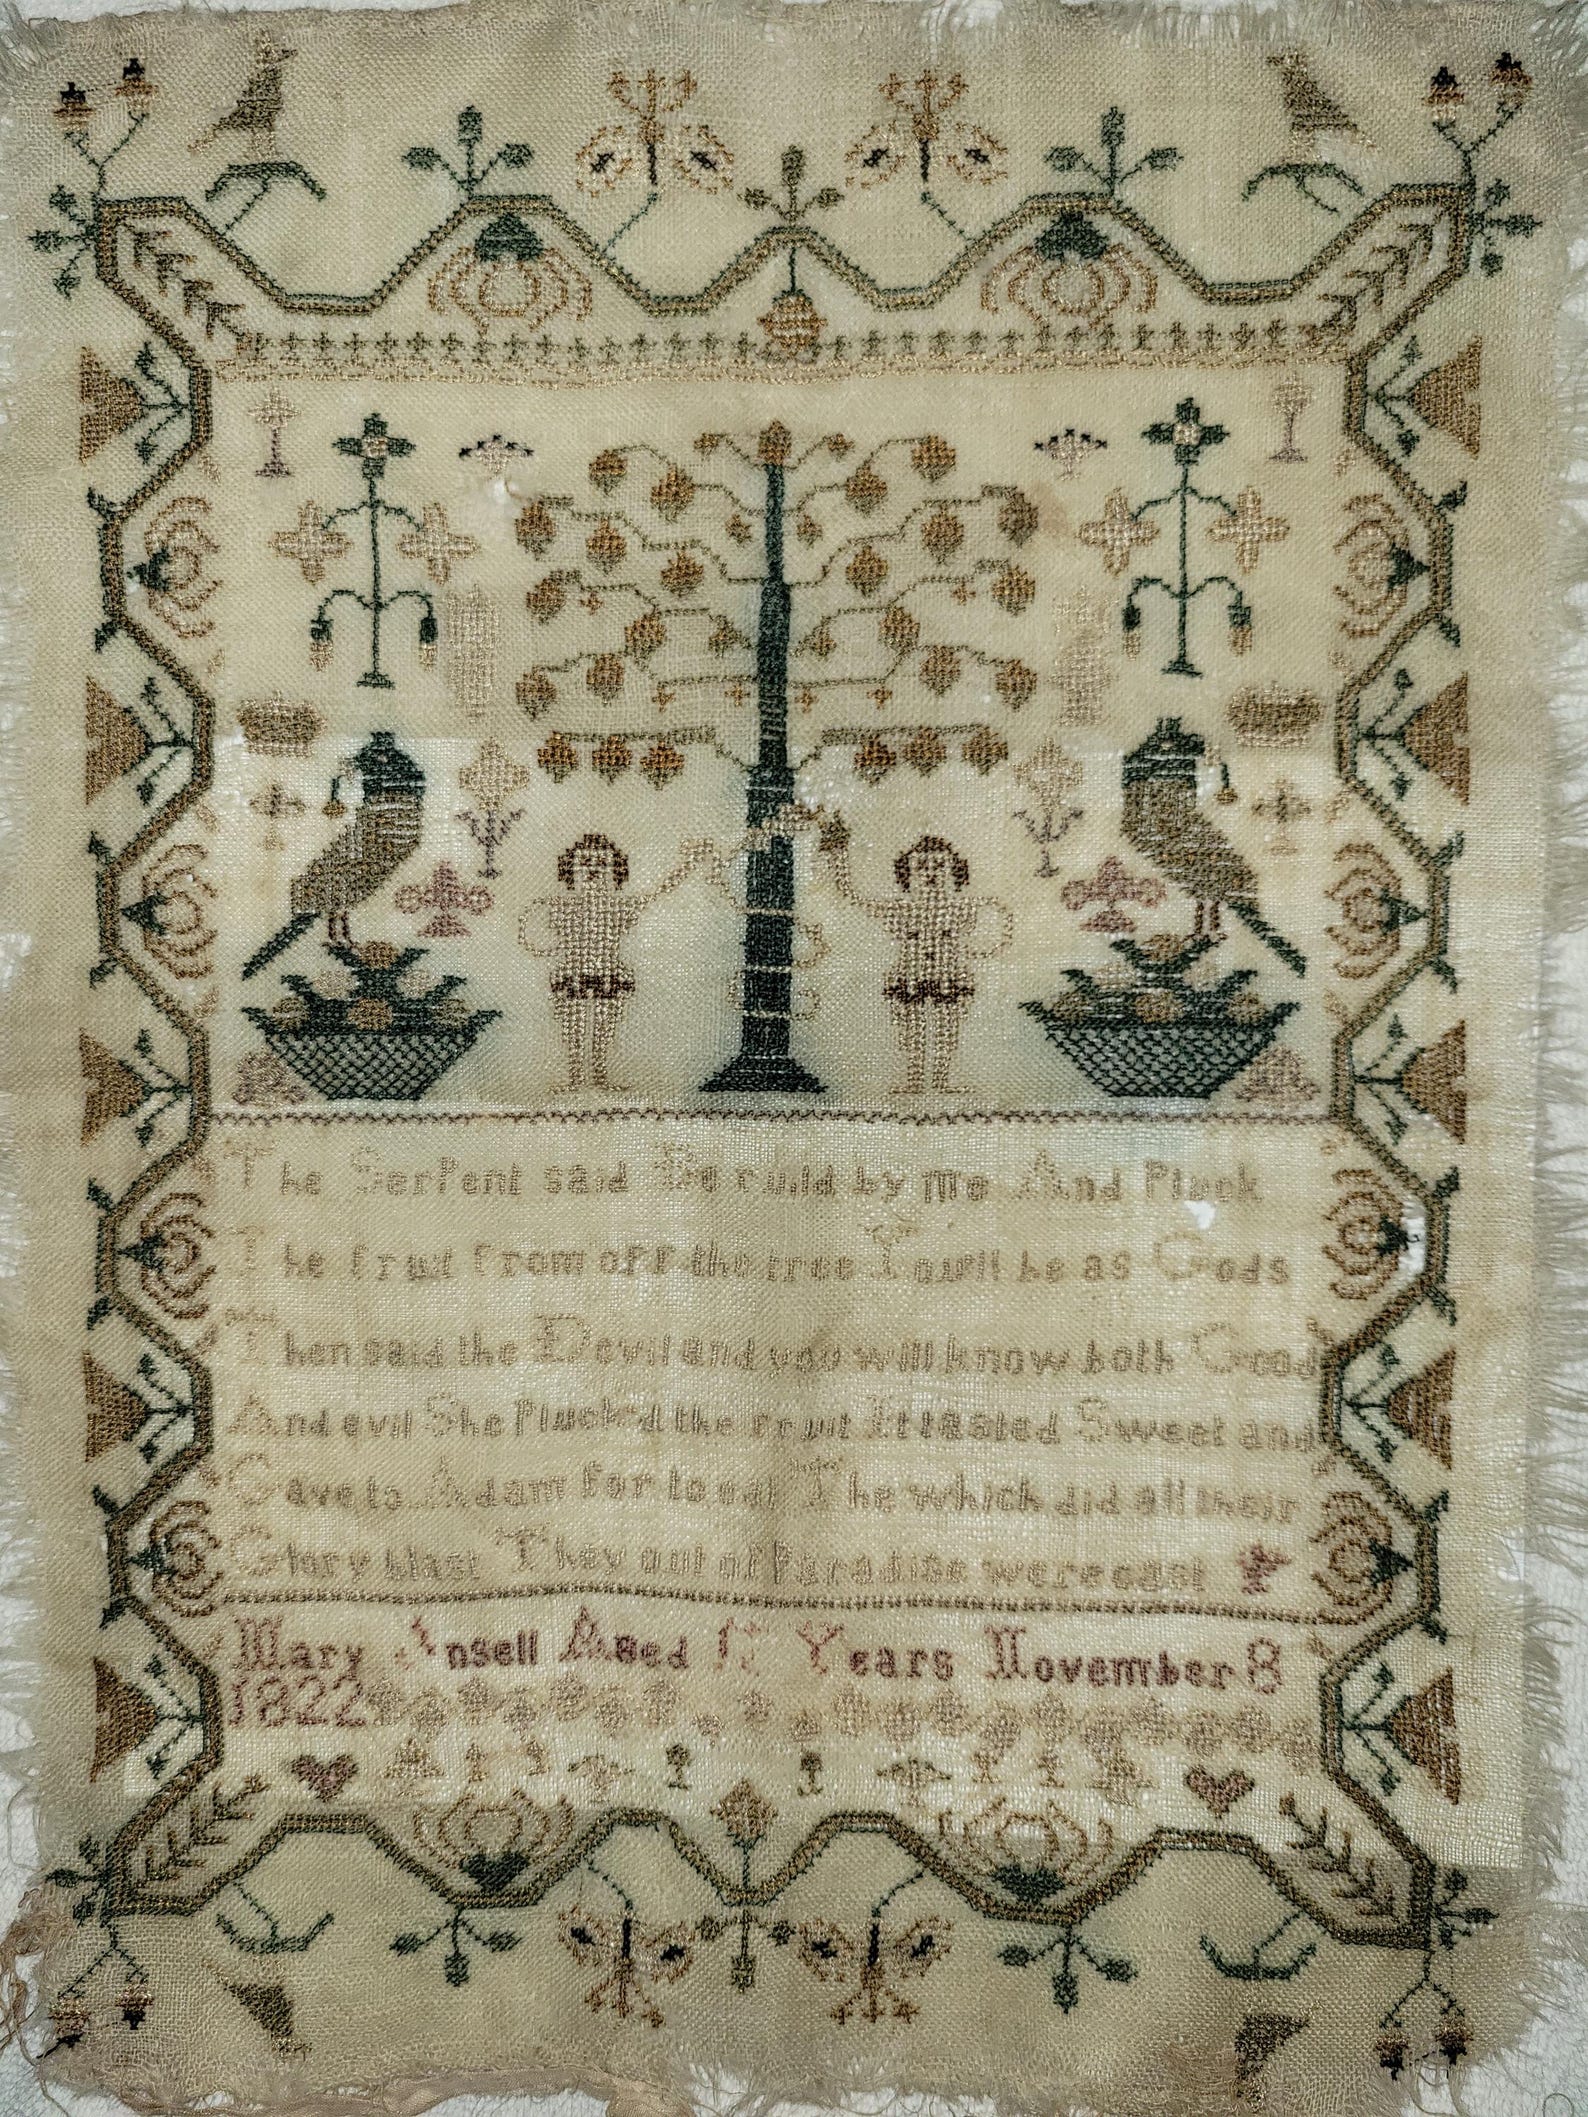 The Serpent said Be ruld by me And Pluck
The fruit from off the tree You'll be as Gods
Then said the Devil and you will know both Good
And evil She Pluck'd the fruit It tasted Sweet and
Gave to Adam for to eat The which did all their
Glory blast They out of Paradise were cast
Mary Ansell Aged Years November 8
1822